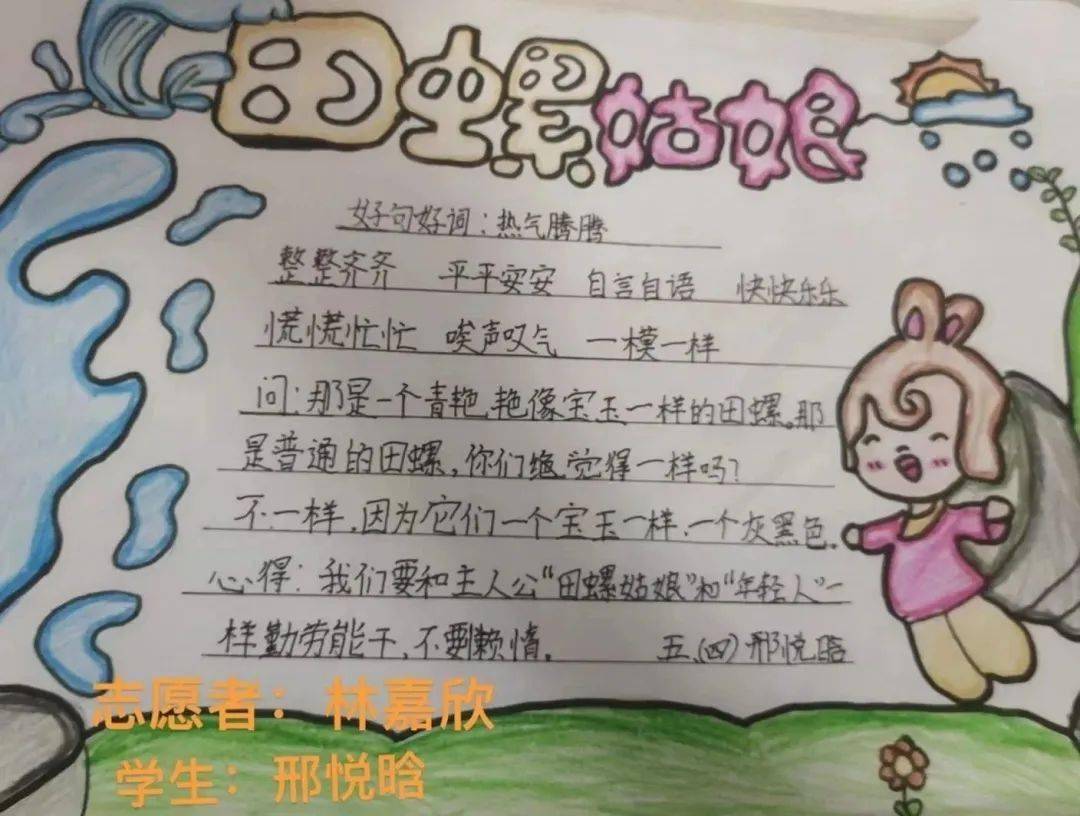 田螺姑娘
好句好词：热气腾腾
整整齐齐 平平安安 自言自语 快快乐乐
慌慌忙忙 唉声叹气 一模一样
问：那是一个青艳艳像宝玉一样的田螺。那
是普通的田螺，你们觉得一样吗？
不一样，因为它们一个宝玉一样，一个灰黑色。
心得：我们要和主人公“田螺姑娘”和“年轻人”一
样勤劳能干，不要懒惰。 五、(四) 邢悦晗
志愿者：林嘉欣
学生：邢悦晗